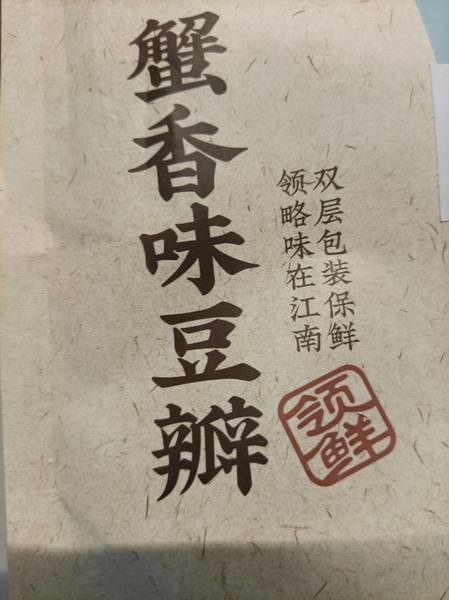 蟹香味豆瓣
双层包装保鲜
领略味在江南
领鲜